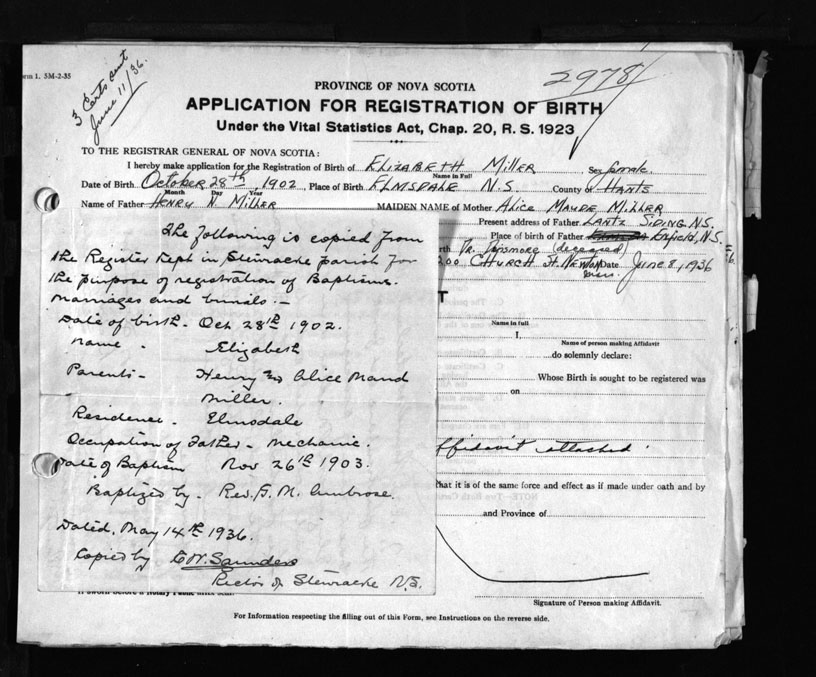 orm 1. 5M-2-35
3 Certs sent
June 11/36.
2978
PROVINCE OF NOVA SCOTIA
APPLICATION FOR REGISTRATION OF BIRTH
Under the Vital Statistics Act, Chap. 20, R. S. 1923
TO THE REGISTRAR GENERAL OF NOVA SCOTIA:
I hereby make application for the Registration of Birth of ELIZABETH MILLER Sex female
Name in Full
Date of Birth October 28th, 1902, Place of Birth ELMSDALE N.S. County of HANTS
Month Day Year
Name of Father HENRY N. MILLER MAIDEN NAME of Mother ALICE MAUDE MILLER
Present address of Father LANTZ SIDING N.S.
Place of birth of Father Enfield, N.S.
Dr. (deceased)
200 CHURCH St. NEWTON Mass. Date JUNE 8, 1936
The following is copied from
the Register kept in Stewiacke parish for
the purpose of registration of Baptisms.
marriages and burials.-
Date of birth - Oct. 28th 1902.
Name - Elizabeth
Parents - Henry and Alice Maud
Miller.
Residence - Elmsdale
Occupation of Father - Mechanic.
Date of Baptism Nov 26th 1903.
Baptized by - Rev. G. M. Ambrose.
Dated, May 14th 1936.
Copied by E W. Saunders
Rector of Stewiacke N.S.
T
Name in full
I,
Name of person making Affidavit
do solemnly declare:
Whose Birth is sought to be registered was
on
ffidavit attached.
hat it is of the same force and effect as if made under oath and by
and Province of
Signature of Person making Affidavit.
For Information respecting the filling out of this Form, see Instructions on the reverse side.